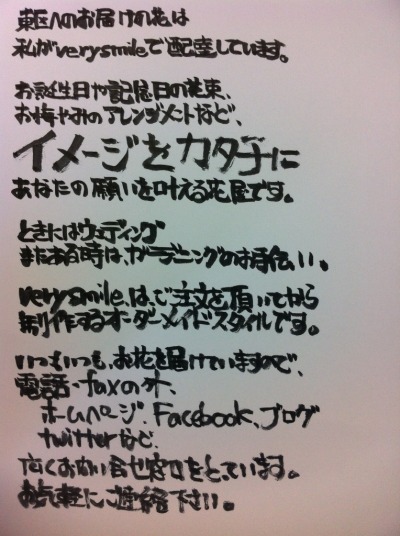 東区へのお届けの花は
私がverysmileで配達しています。
お誕生日や記念日の花束、
お悔やみのアレンジメントなど、
イメージをカタチに
あなたの願いを叶える花屋です。
ときにはウェディング
またある時は、ガーデニングのお手伝い。
verysmileは、ご注文を頂いてから
制作するオーダーメイドスタイルです。
いつもいつも、お花を届けていますので、
電話・faxの外、
ホームページ、Facebook、ブログ
twitterなど、
広くお問い合せ窓口をとっています。
お気軽にご連絡下さい。